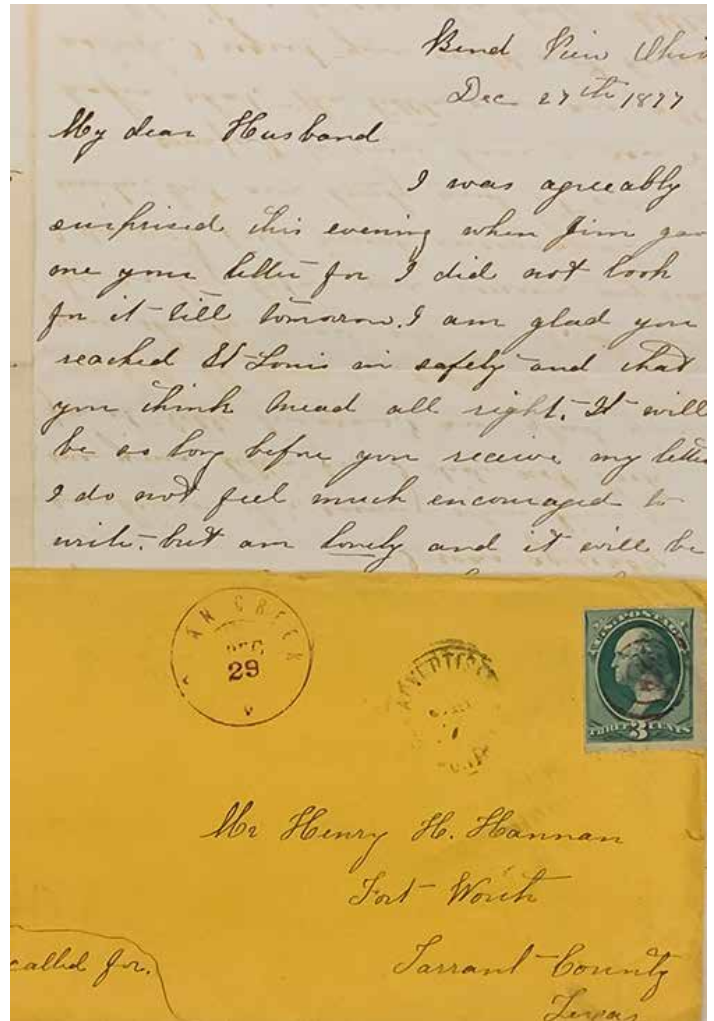 Bend View Ohio
Dec 27th 1877
My dear Husband
I was agreeably
surprised this evening when Jim gav
me your letter for I did not look
for it till tomorrow. I am glad you
reached St Louis in safety and that
you think Mead all right. It will
be so long before you receive my letter
I do not feel much encouraged to
write. but am lonely and it will be
AN CREEK
DEC
29
ADVERTISED
U.S. POSTAGE
THREE 3 CENTS
Mr Henry H. Hannan
Fort Worth
Tarrant County
Texas
called for.